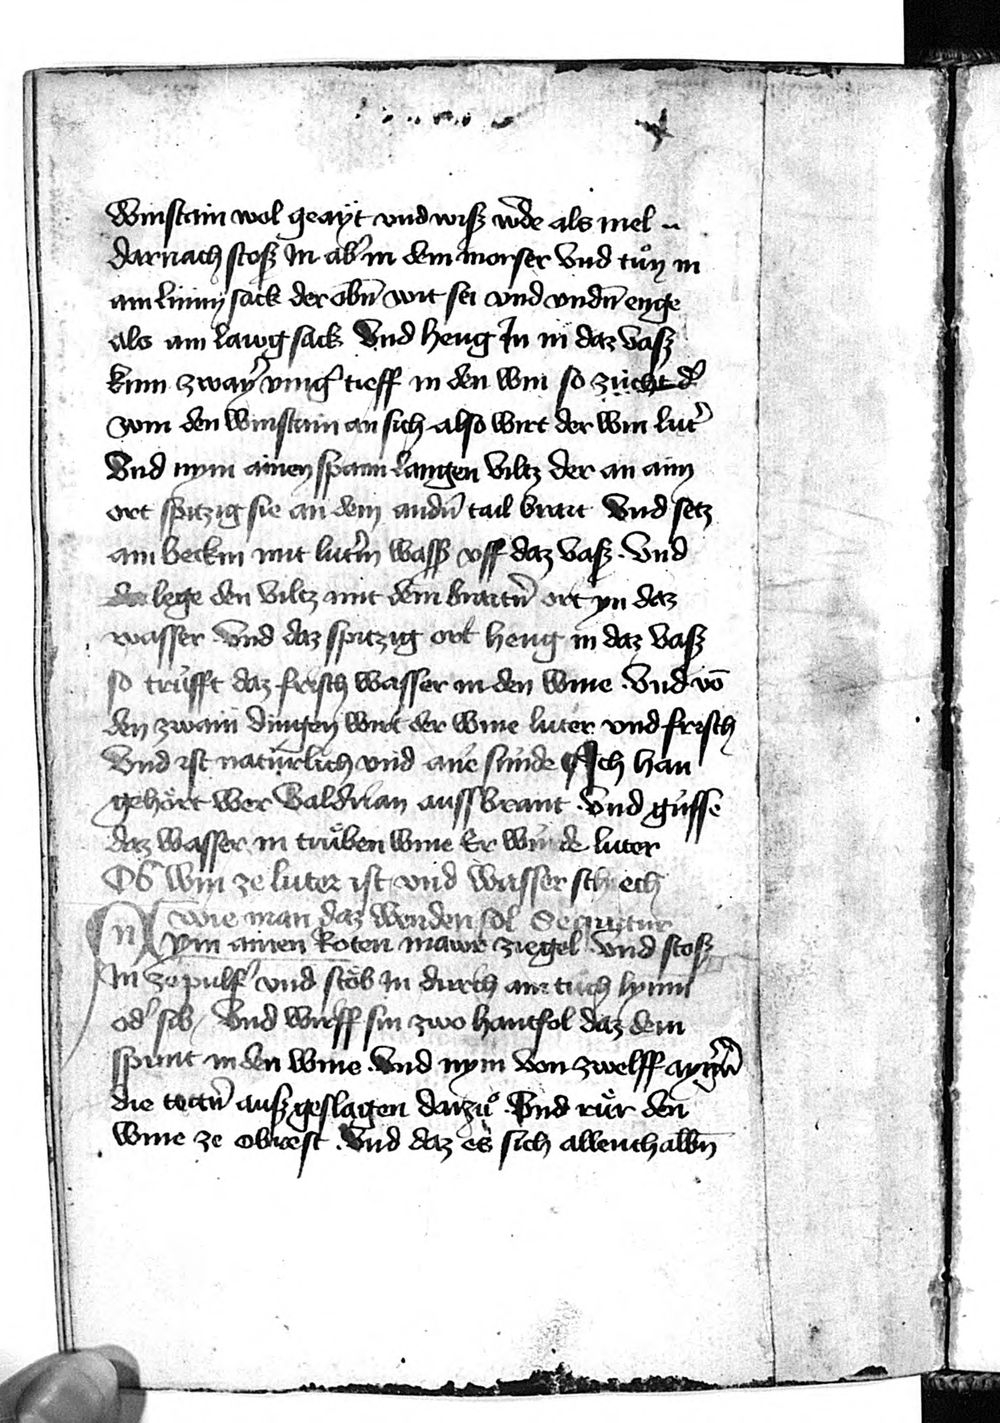 Winstain wol geayt vnd wisß wᵉde als mel ..
darnach stoß In abʼ in dem morser Vnd tuͦn in
ain linny sack der obn̄ wit sei vnd vndn̄ enge
als ain lawg sack Vnd heng In in daz vasß
kum zwayʼ vingʼ tieff in den win so zücht dʼ
win den Winstain an sich also wirt der win lutʼ
Vnd nym ainen spann langen viltz der an aim
ort spitzig sie an dem andn̄ tail brait Vnd setz
ain beckin mit lutʼm wassʼ vff daz vaß . Vnd
lege den viltz mit dem braitn̄ ort yn daz
wasser Vnd daz spitzig ort heng in daz vaß
so trüfft daz frisch wasser in den wine . Vnd vō
den zwain dingen wirt der wine luter vnd frisch
Vnd ist natürlich vnd ane sünde ¶ Ich han
gehört wer Baldrian aussbrant . Vnd gusse
daz wasser in truͤben wine Er würde luter
Ob win ze luter ist vnd wasser schlech
wie man daz wenden sol Sequitur
Nym ainen Roten mawr ziegel Vnd stoß
In ze pulfʼ vnd stöb In durch ain tuch lynin
odʼ sib / Vnd wirff sin zwo hantfol daz dem
spunt in den wine . Vnd nym von zwelff ayrn̄
die tottn̄ auß geslagen darzuͦ . Vnd ruͤr den
wine ze obrest . Vnd daz es sich allenthalbn̄